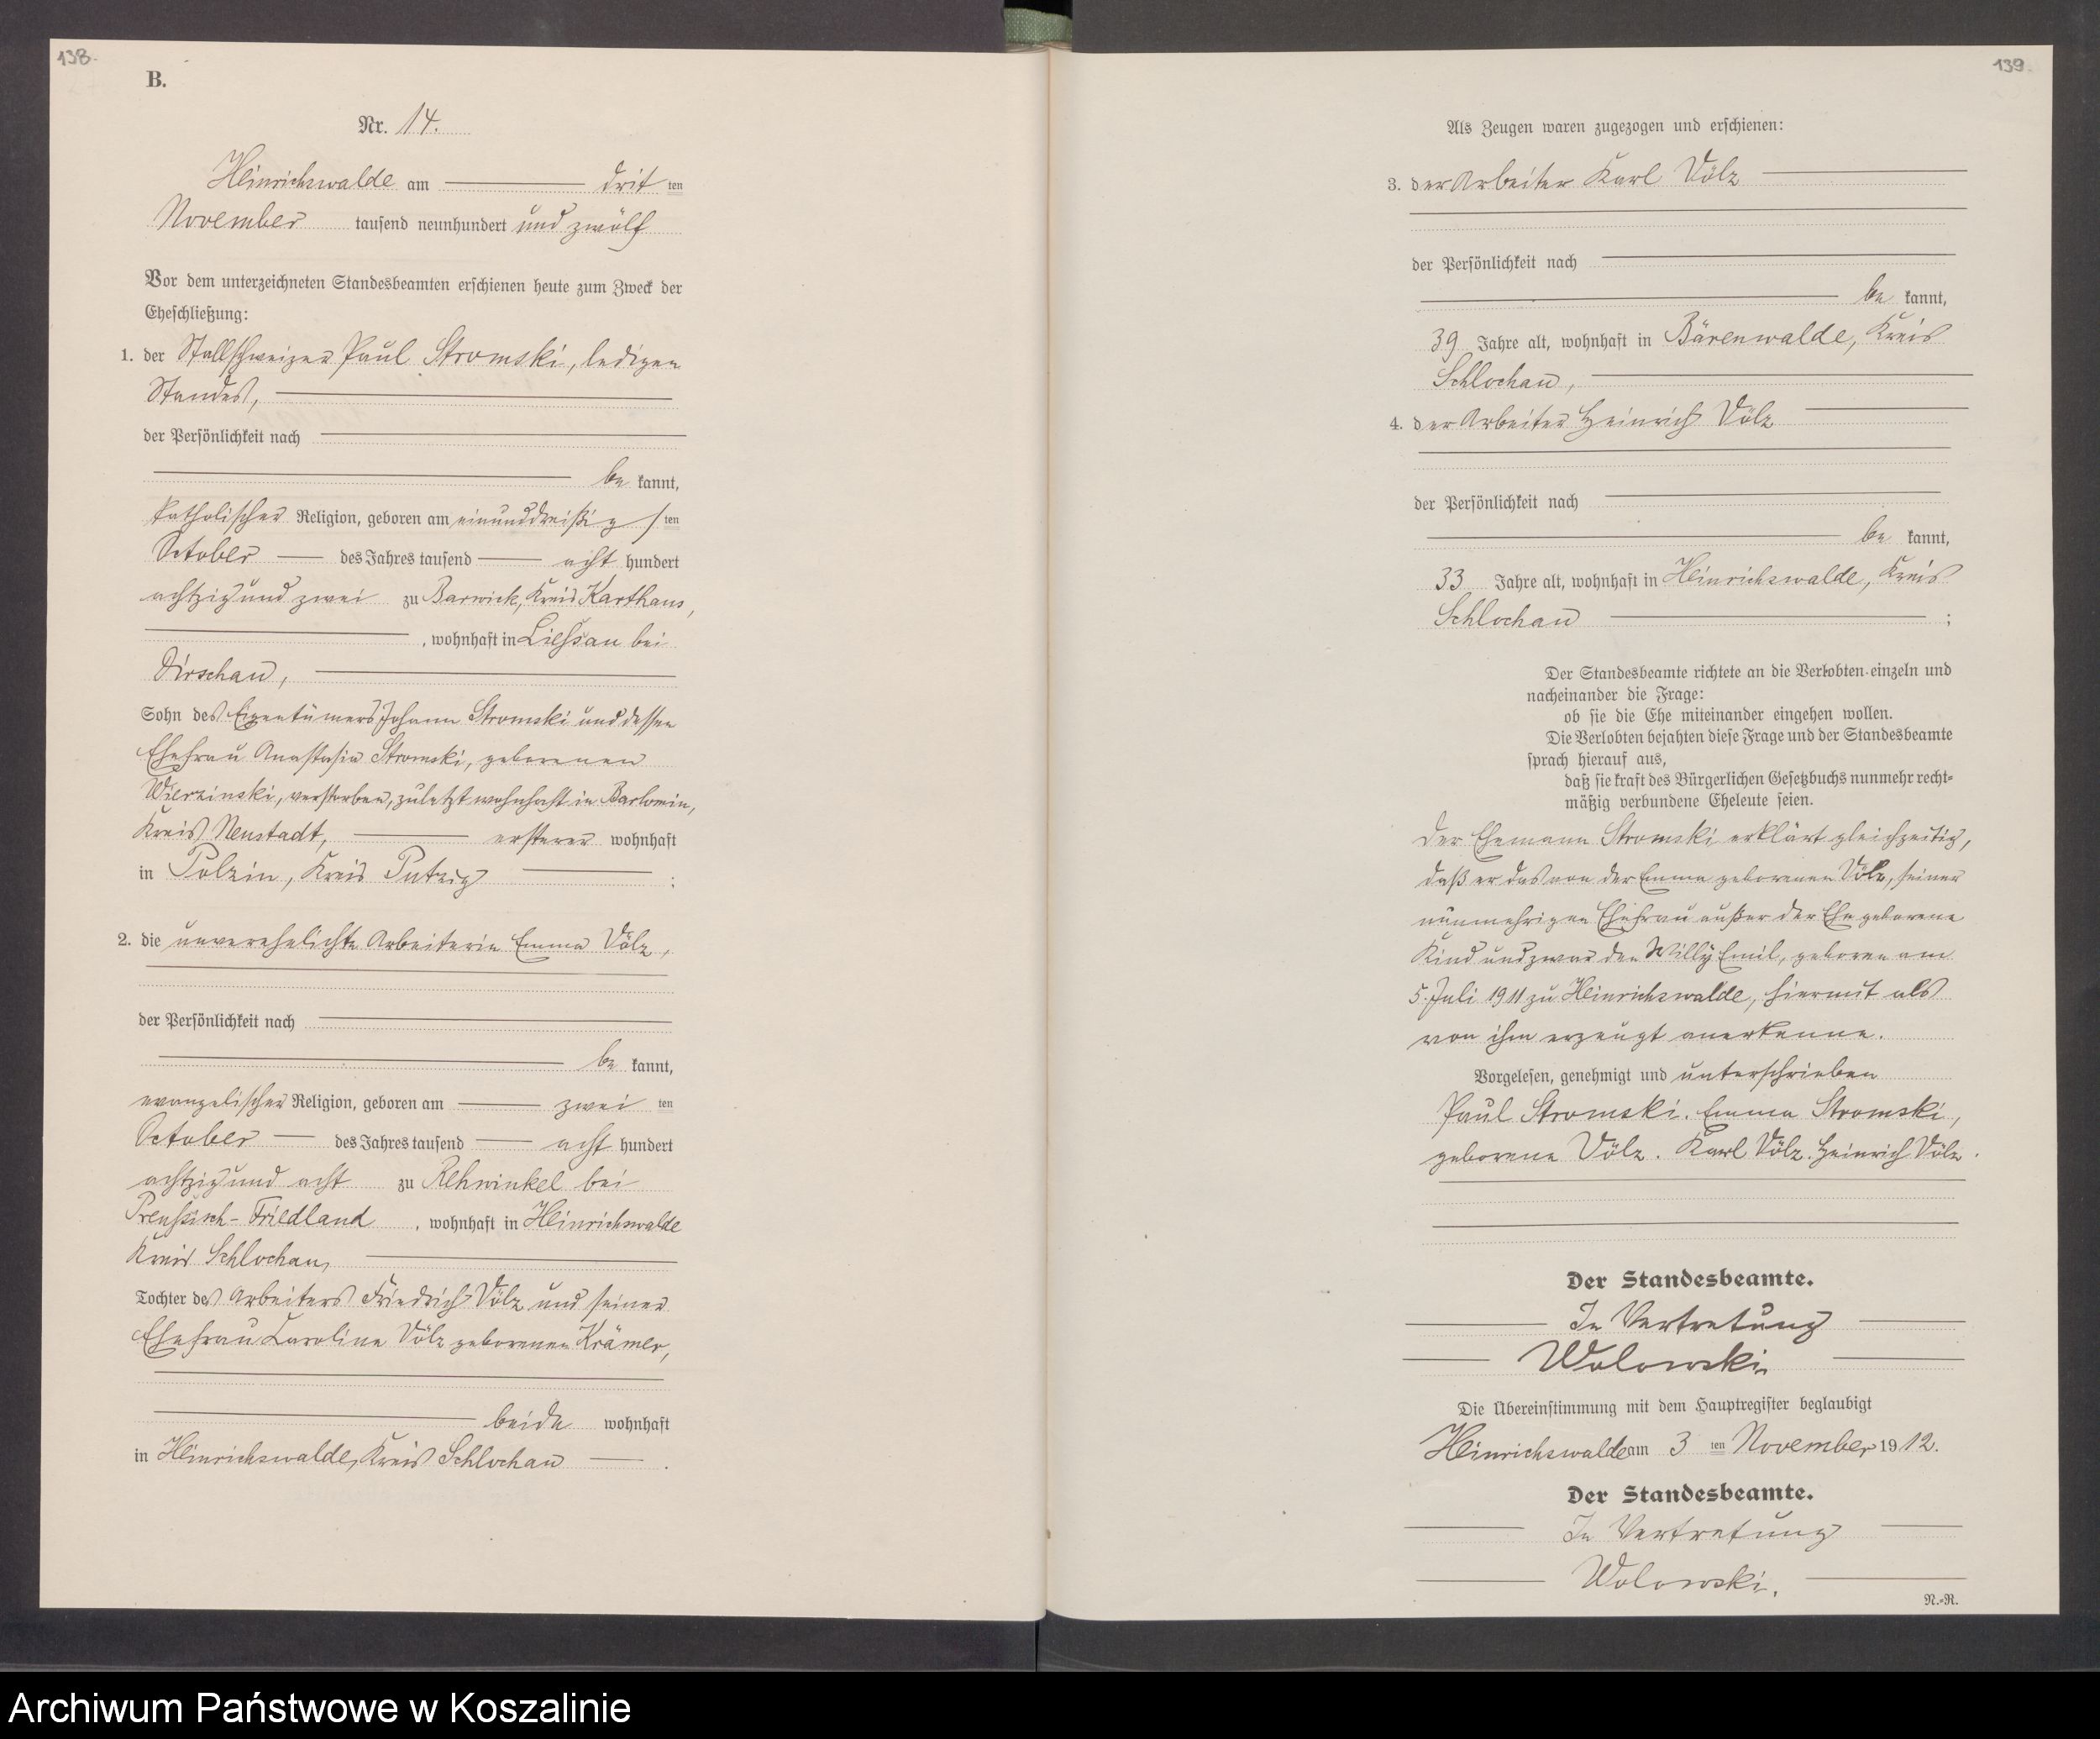 138.
B.
Nr. 14.
Heinrichswalde am dritten
November tausend neunhundert und zwölf
Vor dem unterzeichneten Standesbeamten erschienen heute zum Zweck der
Eheschließung:
1. der Stallschweizer Paul Stromski, ledigen
Standes,
der Persönlichkeit nach
be kannt,
katholischer Religion, geboren am einunddreißigsten
October des Jahres tausend acht hundert
achtzig und zwei zu Barwick, Kreis Karthaus,
, wohnhaft in Liessau bei
Dirschau,
Sohn des Eigentümers Johann Stromski und dessen
Ehefrau Anastasia Stromski, geborenen
Wierzinski, verstorben, zuletzt wohnhaft in Barlomin,
Kreis Neustadt, ersterer wohnhaft
in Polzin, Kreis Putzig ;
2. die unverehelichte Arbeiterin Emma Völz,
der Persönlichkeit nach
be kannt,
evangelischer Religion, geboren am zwei ten
October des Jahres tausend acht hundert
achtzig und acht zu Rehwinkel bei
Preussisch-Friedland, wohnhaft in Heinrichswalde
Kreis Schlochau,
Tochter des Arbeiters Friedrich Völz und seiner
Ehefrau Caroline Völz geborenen Krämer,
beide wohnhaft
in Heinrichswalde, Kreis Schlochau .
139.
Als Zeugen waren zugezogen und erschienen:
3. der Arbeiter Karl Völz
der Persönlichkeit nach
be kannt,
39 Jahre alt, wohnhaft in Bärenwalde, Kreis
Schlochau,
4. der Arbeiter Heinrich Völz
der Persönlichkeit nach
be kannt,
33 Jahre alt, wohnhaft in Heinrichswalde, Kreis
Schlochau ;
Der Standesbeamte richtete an die Verlobten einzeln und
nacheinander die Frage:
ob sie die Ehe miteinander eingehen wollen.
Die Verlobten bejahten diese Frage und der Standesbeamte
sprach hierauf aus,
daß sie kraft des Bürgerlichen Gesetzbuchs nunmehr recht-
mäßig verbundene Eheleute seien.
Der Ehemann Stromski erklärt gleichzeitig,
daß er das von der Emma geborenen Völz, seiner
nunmehrigen Ehefrau außer der Ehe geborene
Kind und zwar den Willy Emil, geboren am
5. Juli 1911 zu Heinrichswalde, hiermit als
von ihm erzeugt anerkenne.
Vorgelesen, genehmigt und unterschrieben
Paul Stromski. Emma Stromski,
geborene Völz. Karl Völz. Heinrich Völz.
Der Standesbeamte.
In Vertretung
Wolowski.
Die Übereinstimmung mit dem Hauptregister beglaubigt
Heinrichswalde am 3 ten November 1912.
Der Standesbeamte.
In Vertretung
Wolowski.
N.-R.
Archiwum Państwowe w Koszalinie